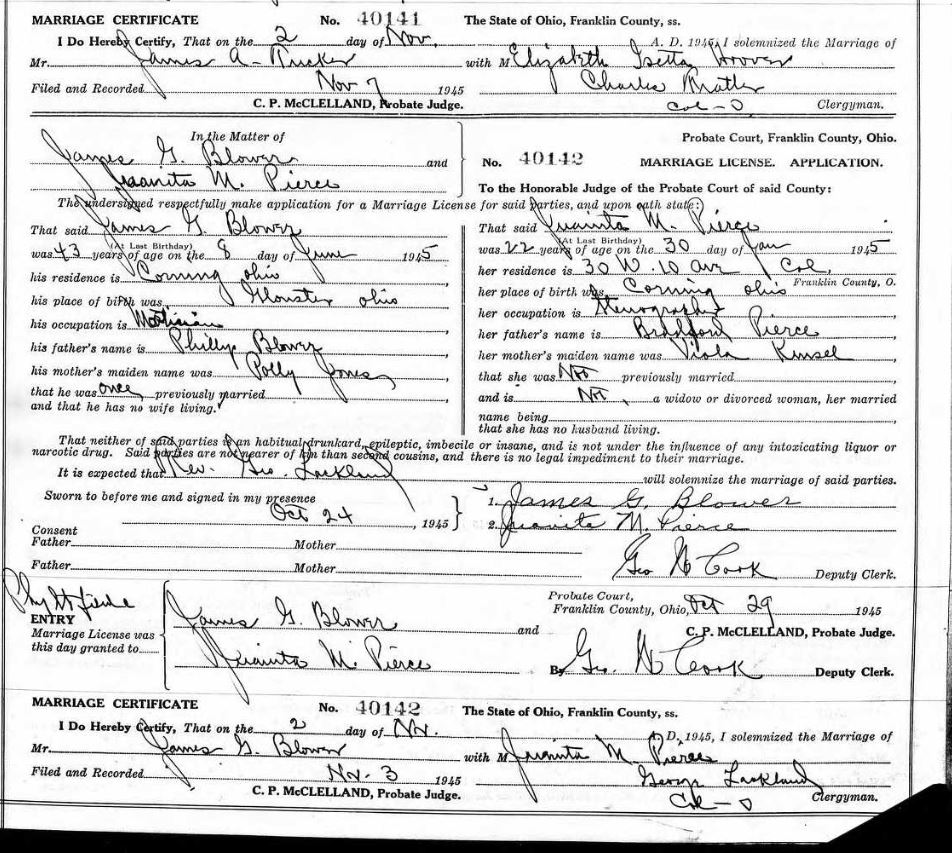 MARRIAGE CERTIFICATE No. 40141 The State of Ohio, Franklin County, ss.
I Do Hereby Certify, That on the 2 day of Nov. A. D. 1945, I solemnized the Marriage of
Mr. James A. Rucker with M Elizabeth Isetta Hoover
Filed and Recorded Nov 7 1945 Charles
C. P. McCLELLAND, Probate Judge. Col-O Clergyman.
In the Matter of
James G. Blower and
Juanita M. Pierce
Probate Court, Franklin County, Ohio.
No. 40142 MARRIAGE LICENSE. APPLICATION.
To the Honorable Judge of the Probate Court of said County:
The undersigned respectfully make application for a Marriage License for said parties, and upon oath state:
That said James G. Blower
(At Last Birthday)
was 43 years of age on the 8 day of June 1945
his residence is Corning Ohio
his place of birth was Glouster Ohio
his occupation is
his father's name is Phillip Blower
his mother's maiden name was Polly Jones
that he was once previously married
and that he has no wife living.
That said Juanita M. Pierce
(At Last Birthday)
was 22 years of age on the 30 day of Jan 1945
her residence is 30 W. 10 ave Col,
Franklin County, O.
her place of birth was Corning Ohio
her occupation is Stenographer
her father's name is Bradford Pierce
her mother's maiden name was Viola Kinsel
that she was Not previously married
and is Not, a widow or divorced woman, her married
name being
that she has no husband living.
That neither of said parties is an habitual drunkard, epileptic, imbecile or insane, and is not under the influence of any intoxicating liquor or
narcotic drug. Said parties are not nearer of kin than second cousins, and there is no legal impediment to their marriage.
It is expected that Rev. Geo. Lackland will solemnize the marriage of said parties.
Sworn to before me and signed in my presence
Oct 24, 1945
1. James G. Blower
2. Juanita M. Pierce
Consent
Father Mother
Father Mother
Geo W Cook Deputy Clerk.
ENTRY
Marriage License was
this day granted to
James G. Blower and
Juanita M. Pierce
Probate Court,
Franklin County, Ohio, Oct 29 1945
C. P. McCLELLAND, Probate Judge.
By Geo. W Cook Deputy Clerk.
MARRIAGE CERTIFICATE No. 40142 The State of Ohio, Franklin County, ss.
I Do Hereby Certify, That on the 2 day of Nov. A. D. 1945, I solemnized the Marriage of
Mr. James G. Blower with M Juanita M. Pierce
Filed and Recorded Nov. 3 1945 George Lackland
C. P. McCLELLAND, Probate Judge. Col-O Clergyman.